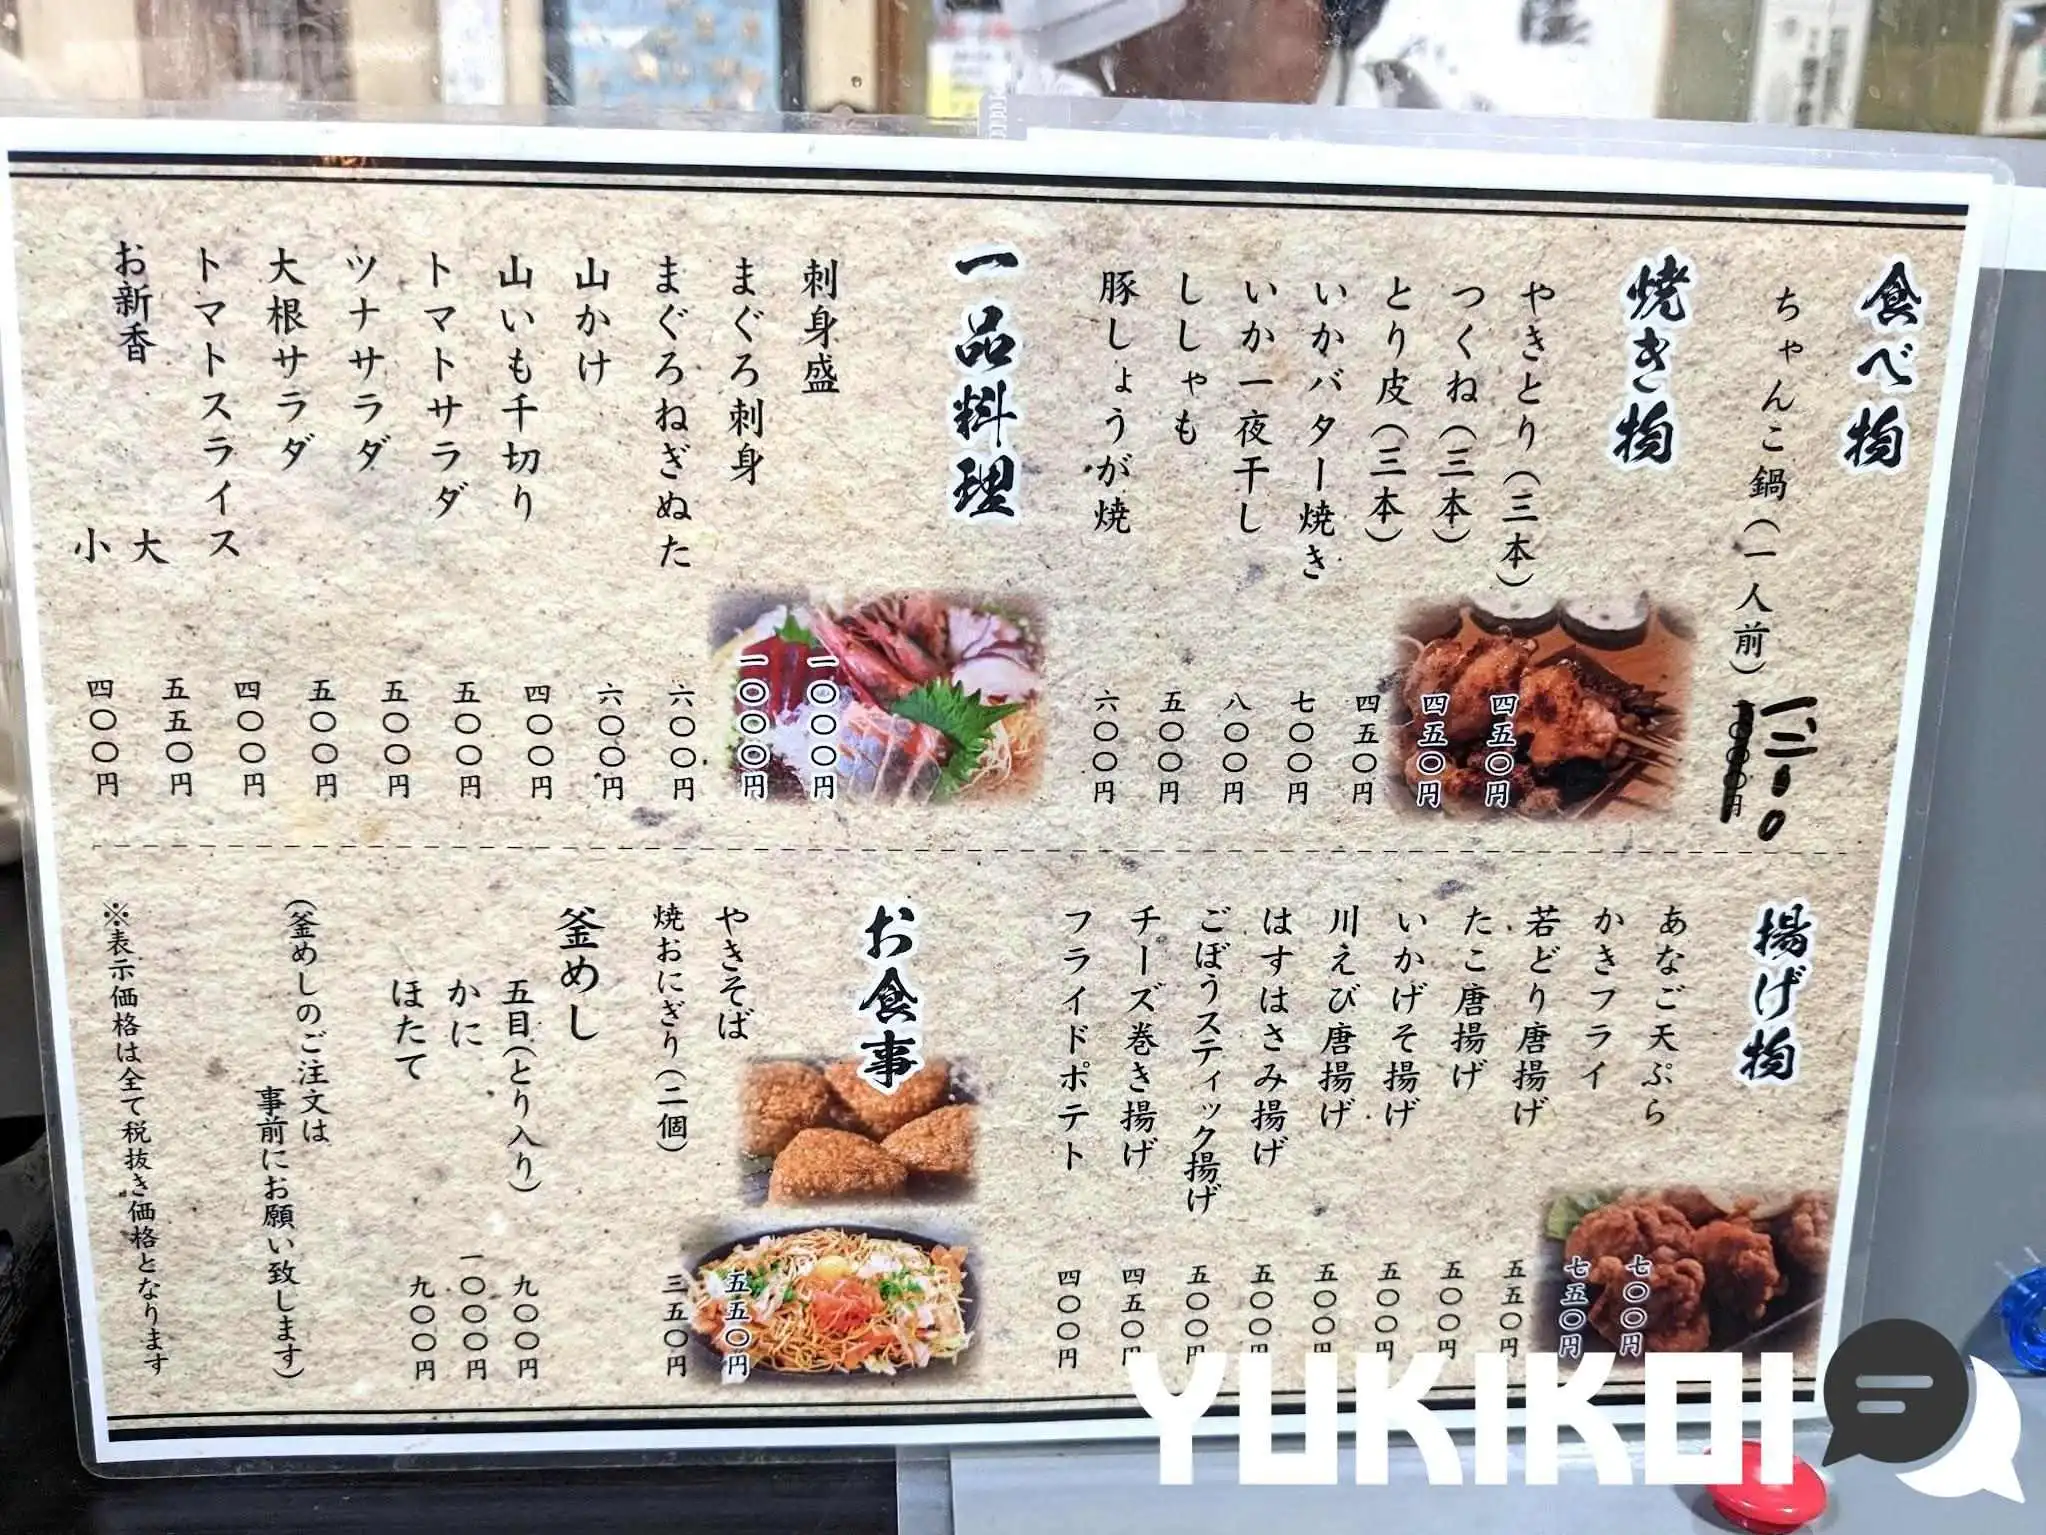 食べ物
ちゃんこ鍋(一人前)
焼き物
やきとり(三本) 四五〇円
つくね(三本) 四五〇円
とり皮(三本) 四五〇円
いかバター焼き 七〇〇円
いか一夜干し 八〇〇円
ししゃも 五〇〇円
豚しょうが焼 六〇〇円
一品料理
刺身盛 一〇〇〇円
まぐろ刺身 一〇〇〇円
まぐろねぎぬた 六〇〇円
山かけ 六〇〇円
山いも千切り 四〇〇円
トマトサラダ 五〇〇円
ツナサラダ 五〇〇円
大根サラダ 五〇〇円
トマトスライス 四〇〇円
お新香 大 五五〇円
小 四〇〇円
揚げ物
あなご天ぷら 七〇〇円
かきフライ 七五〇円
若どり唐揚げ 五五〇円
たこ唐揚げ 五〇〇円
いかげそ揚げ 五〇〇円
川えび唐揚げ 五〇〇円
はすはさみ揚げ 五〇〇円
ごぼうスティック揚げ 五〇〇円
チーズ巻き揚げ 四五〇円
フライドポテト 四〇〇円
お食事
やきそば 五五〇円
焼おにぎり(二個) 三五〇円
釜めし
五目(とり入り) 九〇〇円
かに 一〇〇〇円
ほたて 九〇〇円
(釜めしのご注文は
事前にお願い致します)
※表示価格は全て税抜き価格となります
YUKIKOI